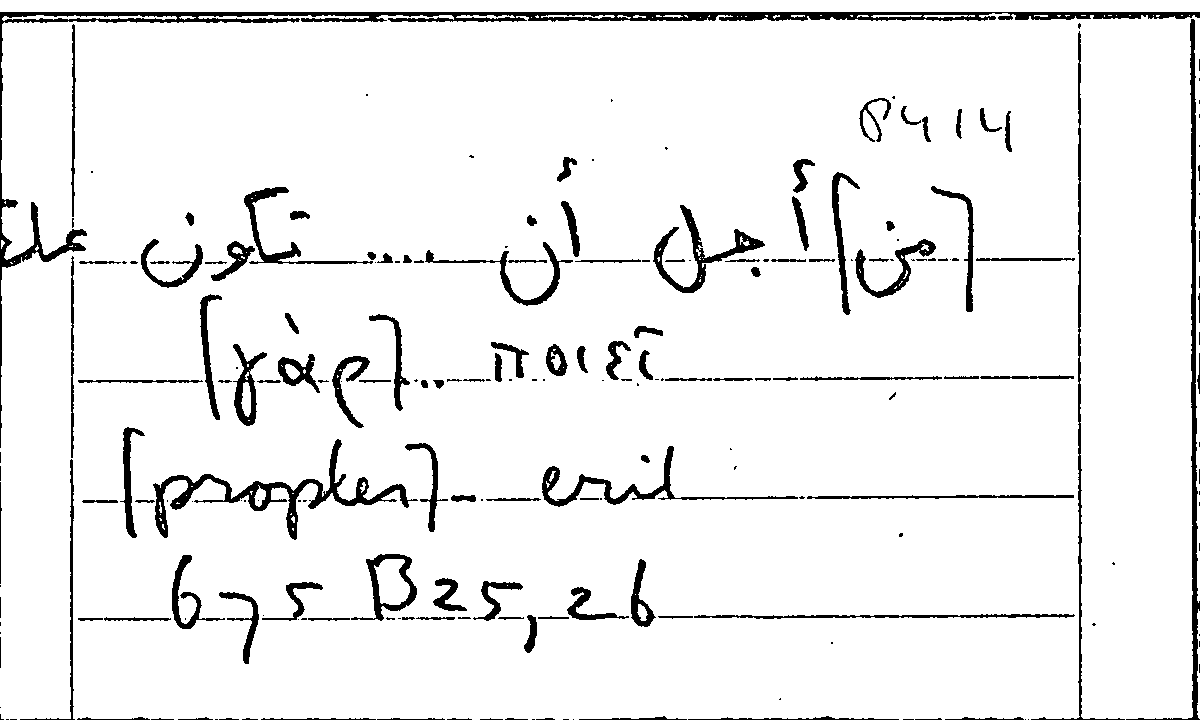 8414
[من] أجل أن .... تكون علة
[γὰρ]... ποιεῖ
[propter]- erit
675 B25, 26